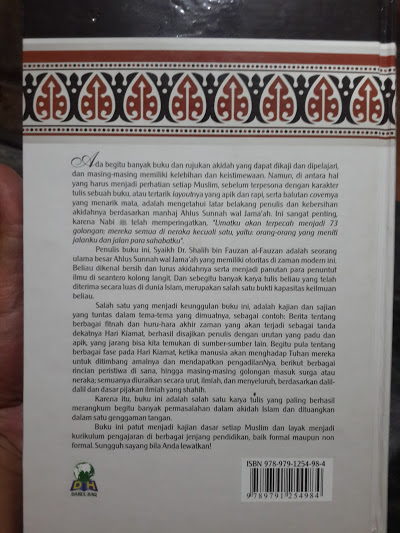 Ada begitu banyak buku dan rujukan akidah yang dapat dikaji dan dipelajari,
dan masing-masing memiliki kelebihan dan keistimewaan. Namun, di antara hal
yang harus menjadi perhatian setiap Muslim, sebelum terpesona dengan karakter
tulis sebuah buku, atau tertarik layoutnya yang apik dan rapi, serta balutan covernya
yang menarik mata, adalah mengetahui latar belakang penulis dan kebersihan
akidahnya berdasarkan manhaj Ahlus Sunnah wal Jama'ah. Ini sangat penting,
karena Nabi ﷺ telah memperingatkan, "Umatku akan terpecah menjadi 73
golongan; mereka semua di neraka kecuali satu, yaitu: orang-orang yang meniti
jalanku dan jalan para sahabatku".
Penulis buku ini, Syaikh Dr. Shalih bin Fauzan al-Fauzan adalah seorang
ulama besar Ahlus Sunnah wal Jama'ah yang memiliki otoritas di zaman modern ini.
Beliau dikenal bersih dan lurus akidahnya serta menjadi panutan para penuntut
ilmu di seantero kolong langit. Dan sebegitu banyak karya tulis beliau yang telah
diterima secara luas di dunia Islam, merupakan salah satu bukti kapasitas keilmuan
beliau.
Salah satu yang menjadi keunggulan buku ini, adalah kajian dan sajian
yang tuntas dalam tema-tema yang dimuatnya, sebagai contoh: Berita tentang
berbagai fitnah dan huru-hara akhir zaman yang akan terjadi sebagai tanda
dekatnya Hari Kiamat, berhasil disajikan penulis dengan urutan yang padu dan
apik, yang jarang bisa kita temukan di sumber-sumber lain. Begitu pula tentang
berbagai fase pada Hari Kiamat, ketika manusia akan menghadap Tuhan mereka
untuk ditimbang amalnya dan mendapatkan pengadilanNya, berikut berbagai
rincian peristiwa di sana, hingga masing-masing golongan masuk surga atau
neraka; semuanya diuraikan secara urut, ilmiah, dan menyeluruh, berdasarkan dalil-
dalil dan dasar pijakan ilmiah yang shahih.
Karena itu, buku ini adalah salah satu karya tulis yang paling berhasil
merangkum begitu banyak permasalahan dalam akidah Islam dan dituangkan
dalam satu genggaman tangan.
Buku ini patut menjadi kajian dasar setiap Muslim dan layak menjadi
kurikulum pengajaran di berbagai jenjang pendidikan, baik formal maupun non
formal. Sungguh sayang bila Anda lewatkan!
ISBN 978-979-1254-98-4
9 789791 254984
DARUL HAQ